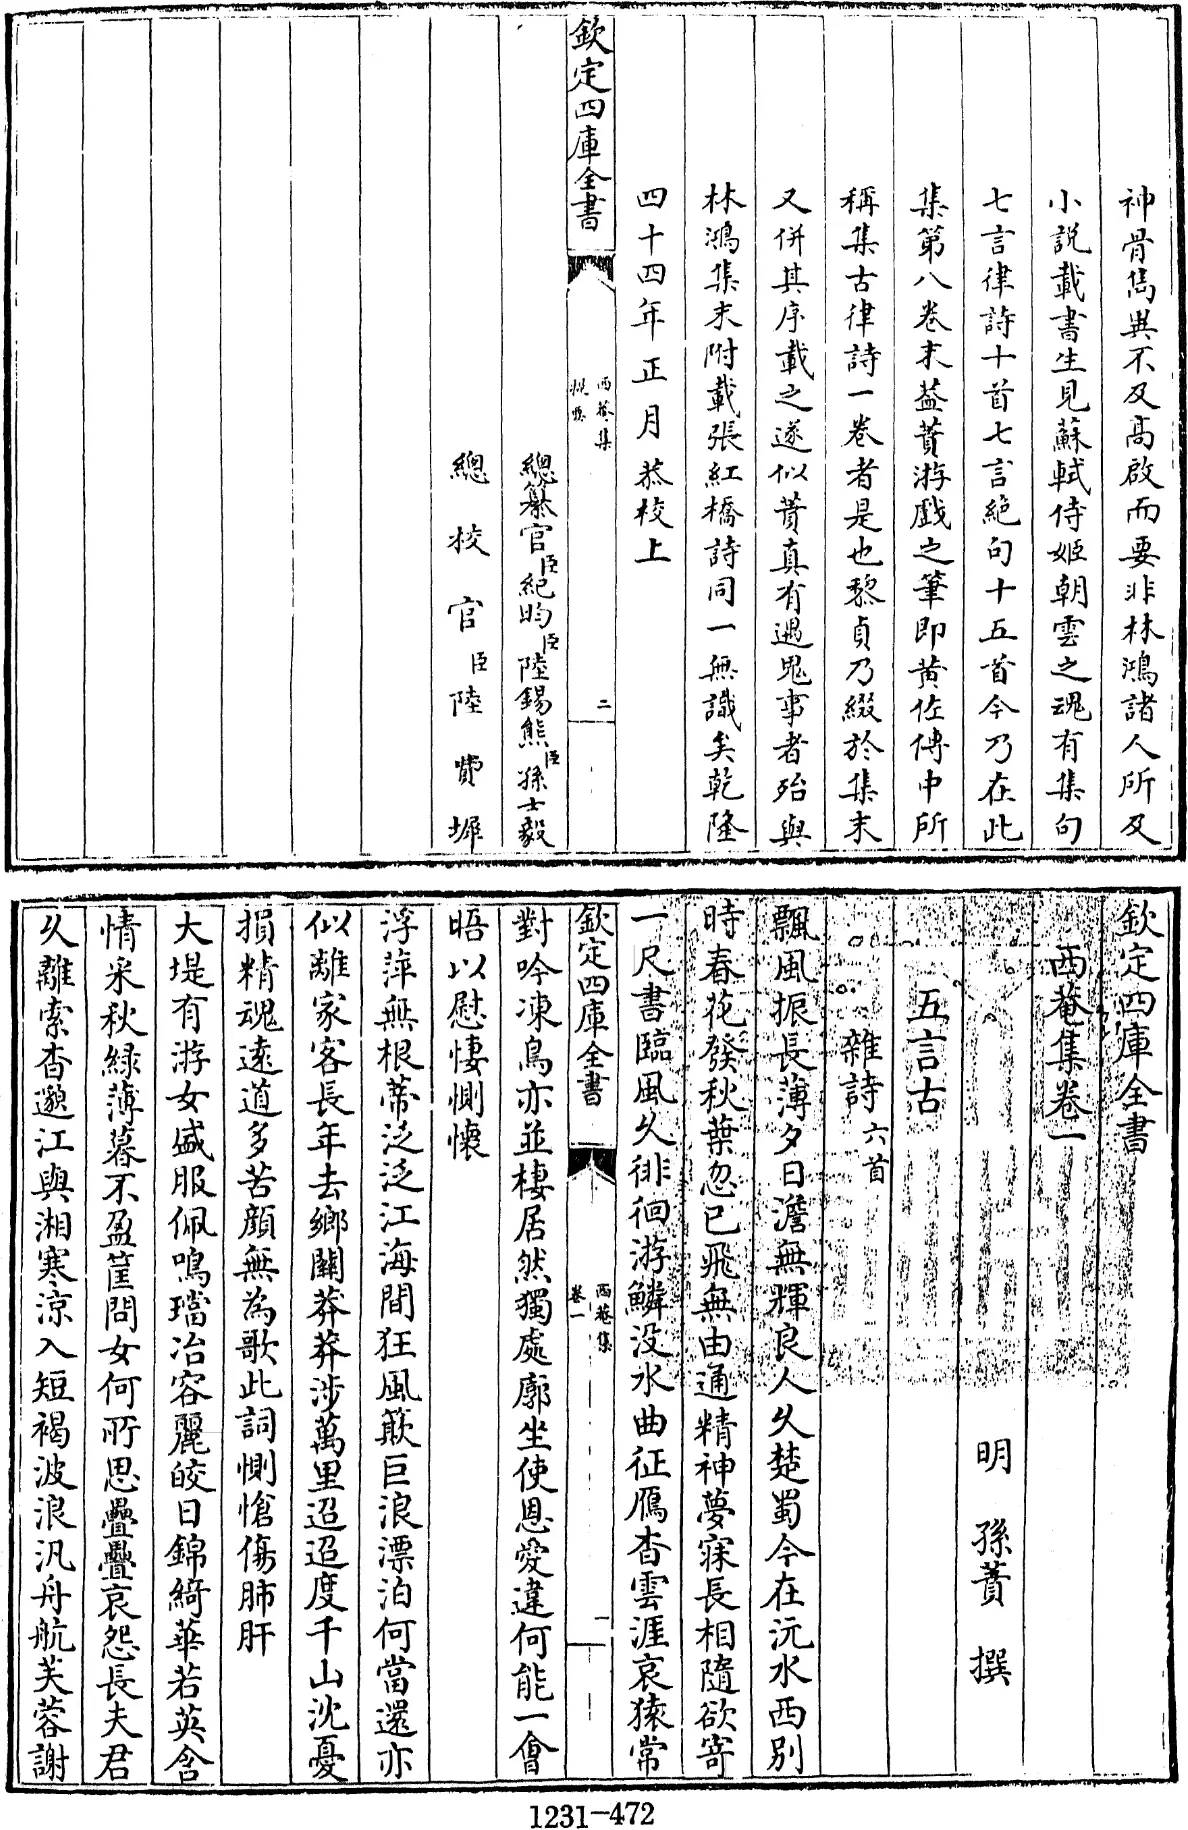 神骨雋異不及高啟而要非林鴻諸人所及
小説載書生見蘇軾侍姬朝雲之魂有集句
七言律詩十首七言絶句十五首今乃在此
集第八卷末葢蕡游戲之筆即黄佐傳中所
稱集古律詩一卷者是也黎貞乃綴於集末
又併其序載之遂似蕡真有遇鬼事者殆與
林鴻集末附載張紅橋詩同一無識矣乾隆
四十四年正月恭校上
欽定四庫全書
西菴集
提要
二
總纂官臣紀昀臣陸錫熊臣孫士毅
總校官臣陸費墀
欽定四庫全書
西菴集卷一
明 孫蕡 撰
五言古
雜詩六首
飄風振長薄夕日澹無輝良人久楚蜀今在沅水西别
時春花發秋葉忽已飛無由通精神夢寐長相隨欲寄
一尺書臨風久徘徊游鱗没水曲征鴈杳雲涯哀猿常
欽定四庫全書
西菴集
卷一
一
對吟凍鳥亦並棲居然獨處廓坐使恩愛違何能一會
晤以慰悽惻懷
浮萍無根蒂泛泛江海間狂風簸巨浪漂泊何當還亦
似離家客長年去鄉關莽莽涉萬里迢迢度千山沈憂
損精魂遠道多苦顔無為歌此詞惻愴傷肺肝
大堤有游女盛服佩鳴璫冶容麗皎日錦綺華若英含
情采秋緑薄暮不盈筐問女何所思疊疊哀怨長夫君
久離索杳邈江與湘寒涼入短褐波浪汎舟航芙蓉謝
1231-472